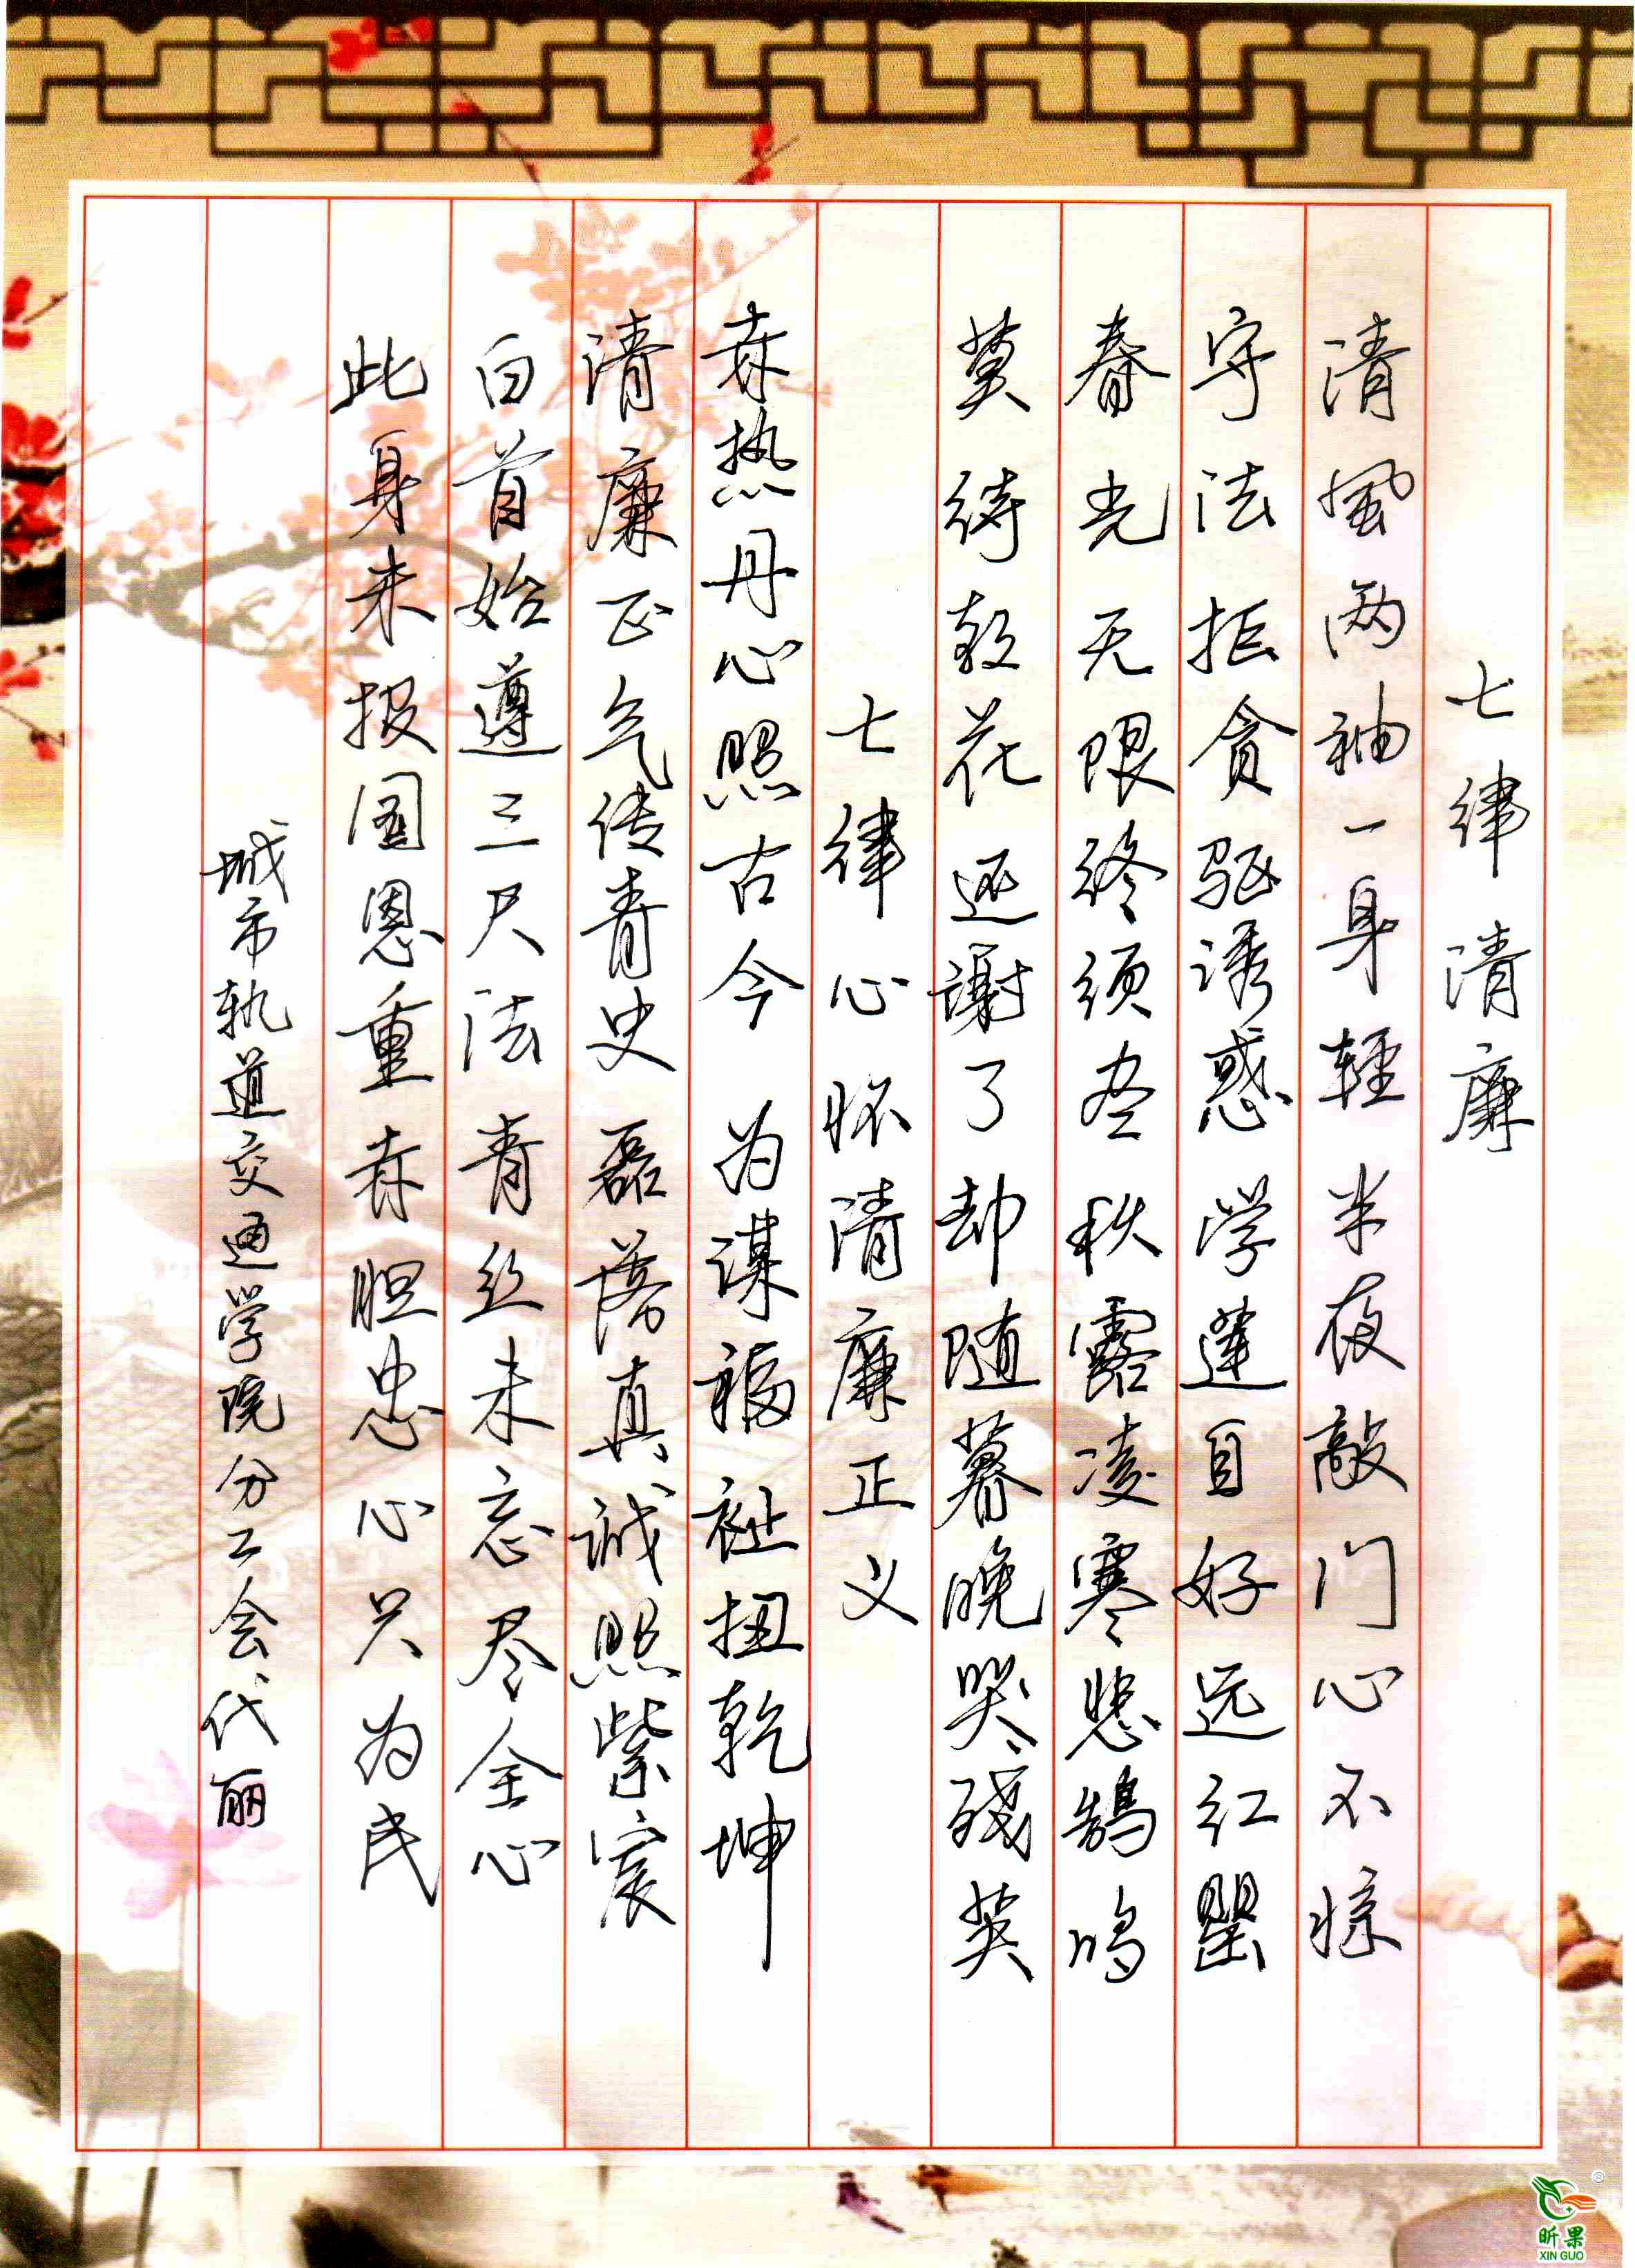 七律 清廉
清風两袖一身轻 半夜敲门心不惊
守法拒贪驱诱惑 学莲自好远红罂
春光无限终须尽 秋露凌寒悲鹄鸣
莫待教花遮谢了 却随暮晚哭残英
七律 心怀清廉正义
赤热丹心照古今 为谋福祉扭乾坤
清廉正气传青史 磊落真诚照紫宸
白首始遵三尺法 青丝未忘尽全心
此身未报国恩重 赤胆忠心只为民
城市轨道交通学院分工会代丽
昕果
XIN GUO